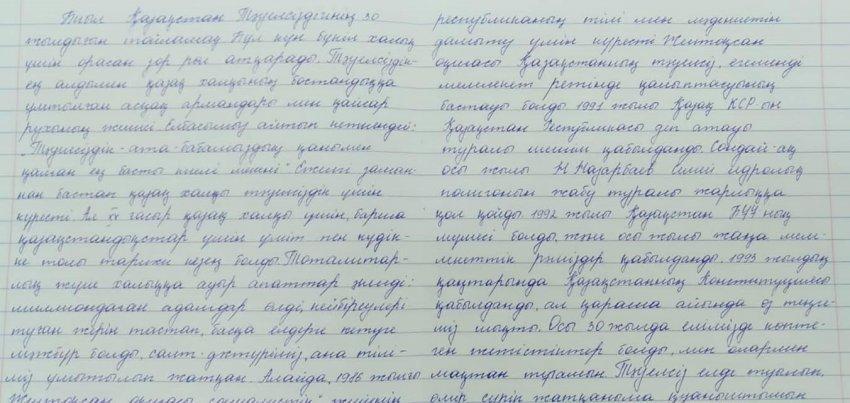 Биыл Қазақстан Тәуелсіздігінің 30
жылдығын тойламақ Бұл күн бүкіл халық
үшін орасан зор рөл атқарады. Тәуелсіздік-
ең алдымен қазақ халқының бостандыққа
ұмтылған асқақ армандары мен қайсар
рухының жеңісі Елбасымыз айтып кеткендей:
"Тәуелсіздік - ата-бабамыздың қанымен
қалған ең басты киелі мекені" Ежелгі заман-
нан бастап қазақ халқы тәуелсіздік үшін
күресті Ал ХХ ғасыр қазақ халқы үшін, барша
қазақстандықтар үшін үміт пен күдік-
ке толы тарихи кезең болды. Тоталитар-
лық жүйе халыққа ауыр апаттар әкелді:
миллиондаған адамдар өлді, кейбіреулері
туған жерін тастап, басқа елдерге кетуге
мәжбүр болды, салт-дәстүріміз, ана тілі-
міз ұмытылып жатқан. Алайда, 1986 жылғы
Желтоқсан оқиғасы
республиканың тілі мен мәдениетін
дамыту үшін күресті Желтоқсан
оқиғасы Қазақстанның тәуелсіз, егеменді
мемлекет ретінде қалыптасуының
бастауы болды 1991 жылы Қазақ КСР-ын
Қазақстан Республикасы деп атау
туралы шешім қабылданды. Сондай-ақ
осы жылы Н Назарбаев Семей ядролық
полигонын жабу туралы жарлыққа
қол қойды. 1992 жылы Қазақстан БҰҰ ның
мүшесі болды, және осы жылы жаңа мем-
лекеттік рәміздер қабылданды. 1993 жылдың
қаңтарында Қазақстанның Конституциясы
қабылданды, ал қараша айында өз теңге-
міз шықты. Осы 30 жылда елімізде көпте-
ген жетістіктер болды, мен олармен
мақтан тұтамын. Тәуелсіз елде туылып,
өмір сүріп жатқаныма қуаныштымын